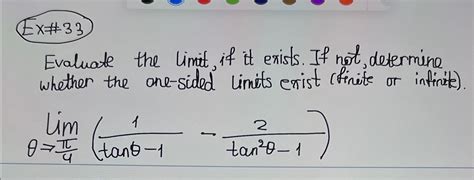 Ex#33
Evaluate the limit, if it exists. If not, determine
whether the one-sided limits exist (finite or infinite).
lim θ→π/4 (1/(tanθ-1) - 2/(tan²θ-1))